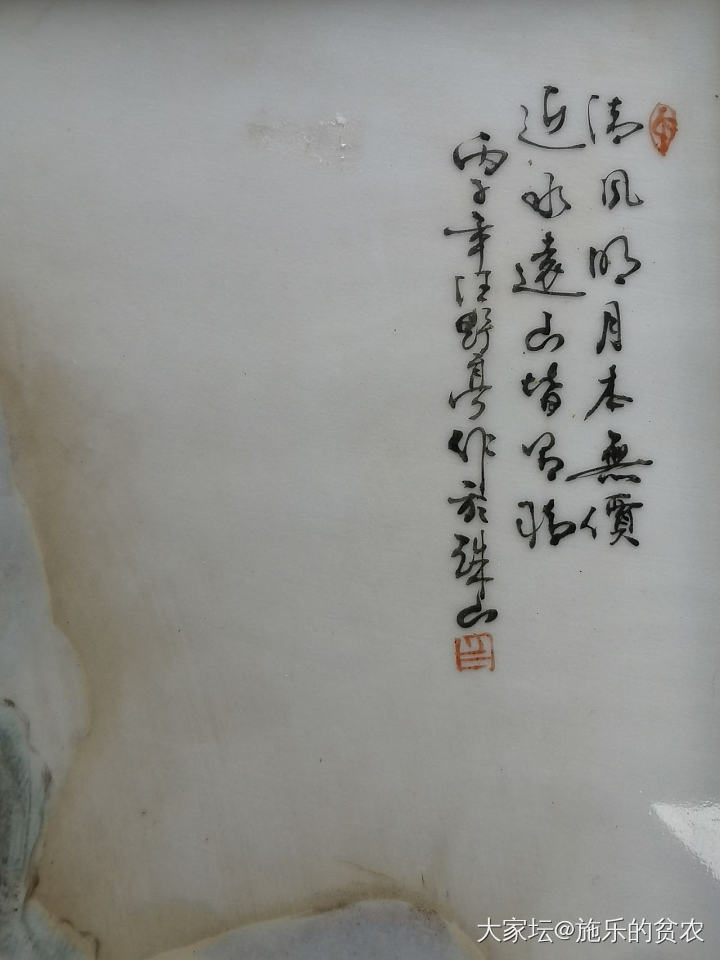 清风明月本無價
近水遠山皆有情
丙子年汪野亭作於珠山
大家坛@施乐的贫农